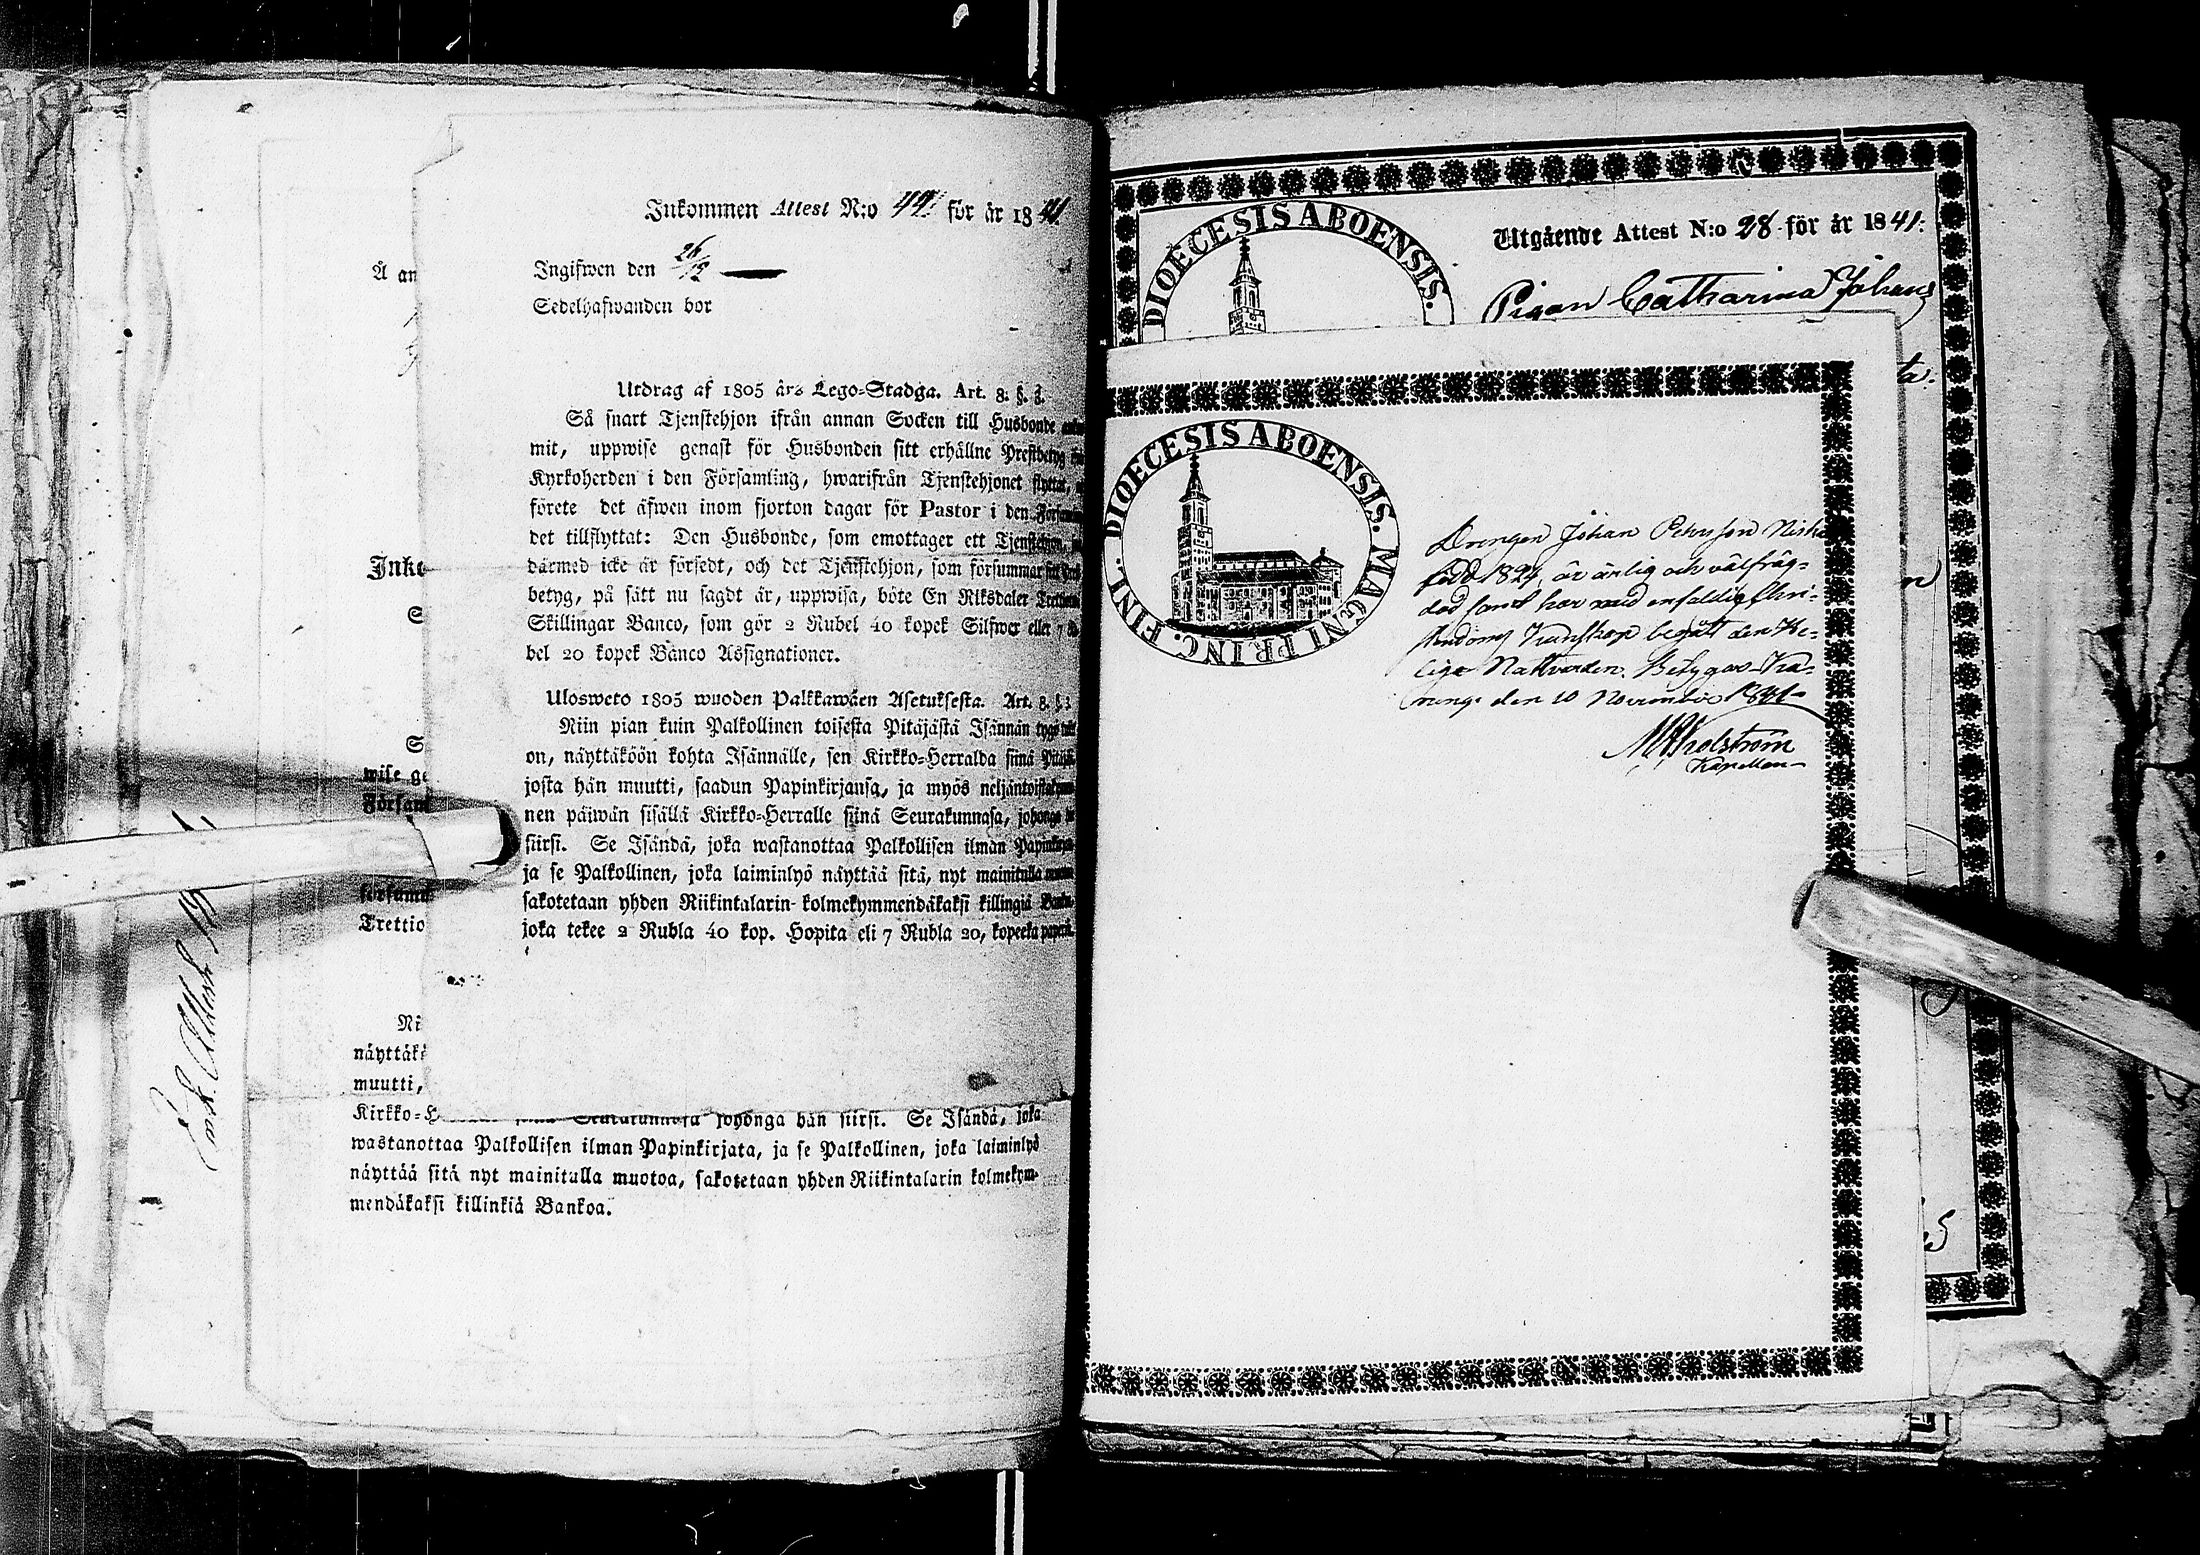 Inkommen Attest N:o 44. för år 1841
Ingifwen den 26/12
Sedelhafwanden bor
Utdrag af 1805 års Lego-Stadga. Art. 8. §. 3.
Så snart Tjenstehjon ifrån annan Socken till Husbonde
mit, uppwise genast för Husbonden sitt erhållne Prestbetyg
Kyrkoherden i den Församling, hwarifrån Tjenstehjonet flyttat,
förete det äfwen inom fjorton dagar för Pastor i den
det tillflyttat: Den Husbonde, som emottager ett Tjenstehjon,
därmed icke är försedt, och det Tjenstehjon, som försummar
betyg, på sätt nu sagdt är, uppwisa, böte En Riksdaler Trettio
Skillingar Banco, som gör 2 Rubel 40 kopek Silfwer eller 7
bel 20 kopek Banco Assignationer.
Ulosweto 1805 wuoden Palkkawäen Asetuksesta. Art. 8. §. 3
Niin pian kuin Palkollinen toisesta Pitäjästä Isännän tygö
on, näyttäköön kohta Isännälle, sen Kirkko-Herralda siinä
josta hän muutti, saadun Papinkirjansa, ja myös
nen päiwän sisällä Kirkko-Herralle siinä Seurakunnasa, johonga
siirsi. Se Isändä, joka wastanottaa Palkollisen ilman
ja se Palkollinen, joka laiminlyö näyttää sitä, nyt mainitulla
sakotetaan yhden Riikintalarin kolmekymmendäkaksi killingiä
joka tekee 2 Rubla 40 kop. Hopita eli 7 Rubla 20, kopeeka
Å an
Inko
S
S
wise ge
Försam
försumm
Trettio
Ni
näyttäkö
muutti,
Kirkko-H Seurakunnasa johonga hän siirsi. Se Isändä, joka
wastanottaa Palkollisen ilman Papinkirjata, ja se Palkollinen, joka laiminlyö
näyttää sitä nyt mainitulla muotoa, sakotetaan yhden Riikintalarin kolmekym-
mendäkaksi killinkiä Bankoa.
DIOECESIS ABOENSIS.
Utgående Attest N:o 28 för år 1841.
Pigan Catharina Johans
ta.
DIOECESIS ABOENSIS. MAGNI PRINC. FINL.
Drengen Johan Petersson
född 1824, är ärlig och välfräg-
dad samt har med enfaldig Chri-
stendoms kunskap begått den He-
liga Nattvarden. Betygas
den 10 November 1841
Kapellan